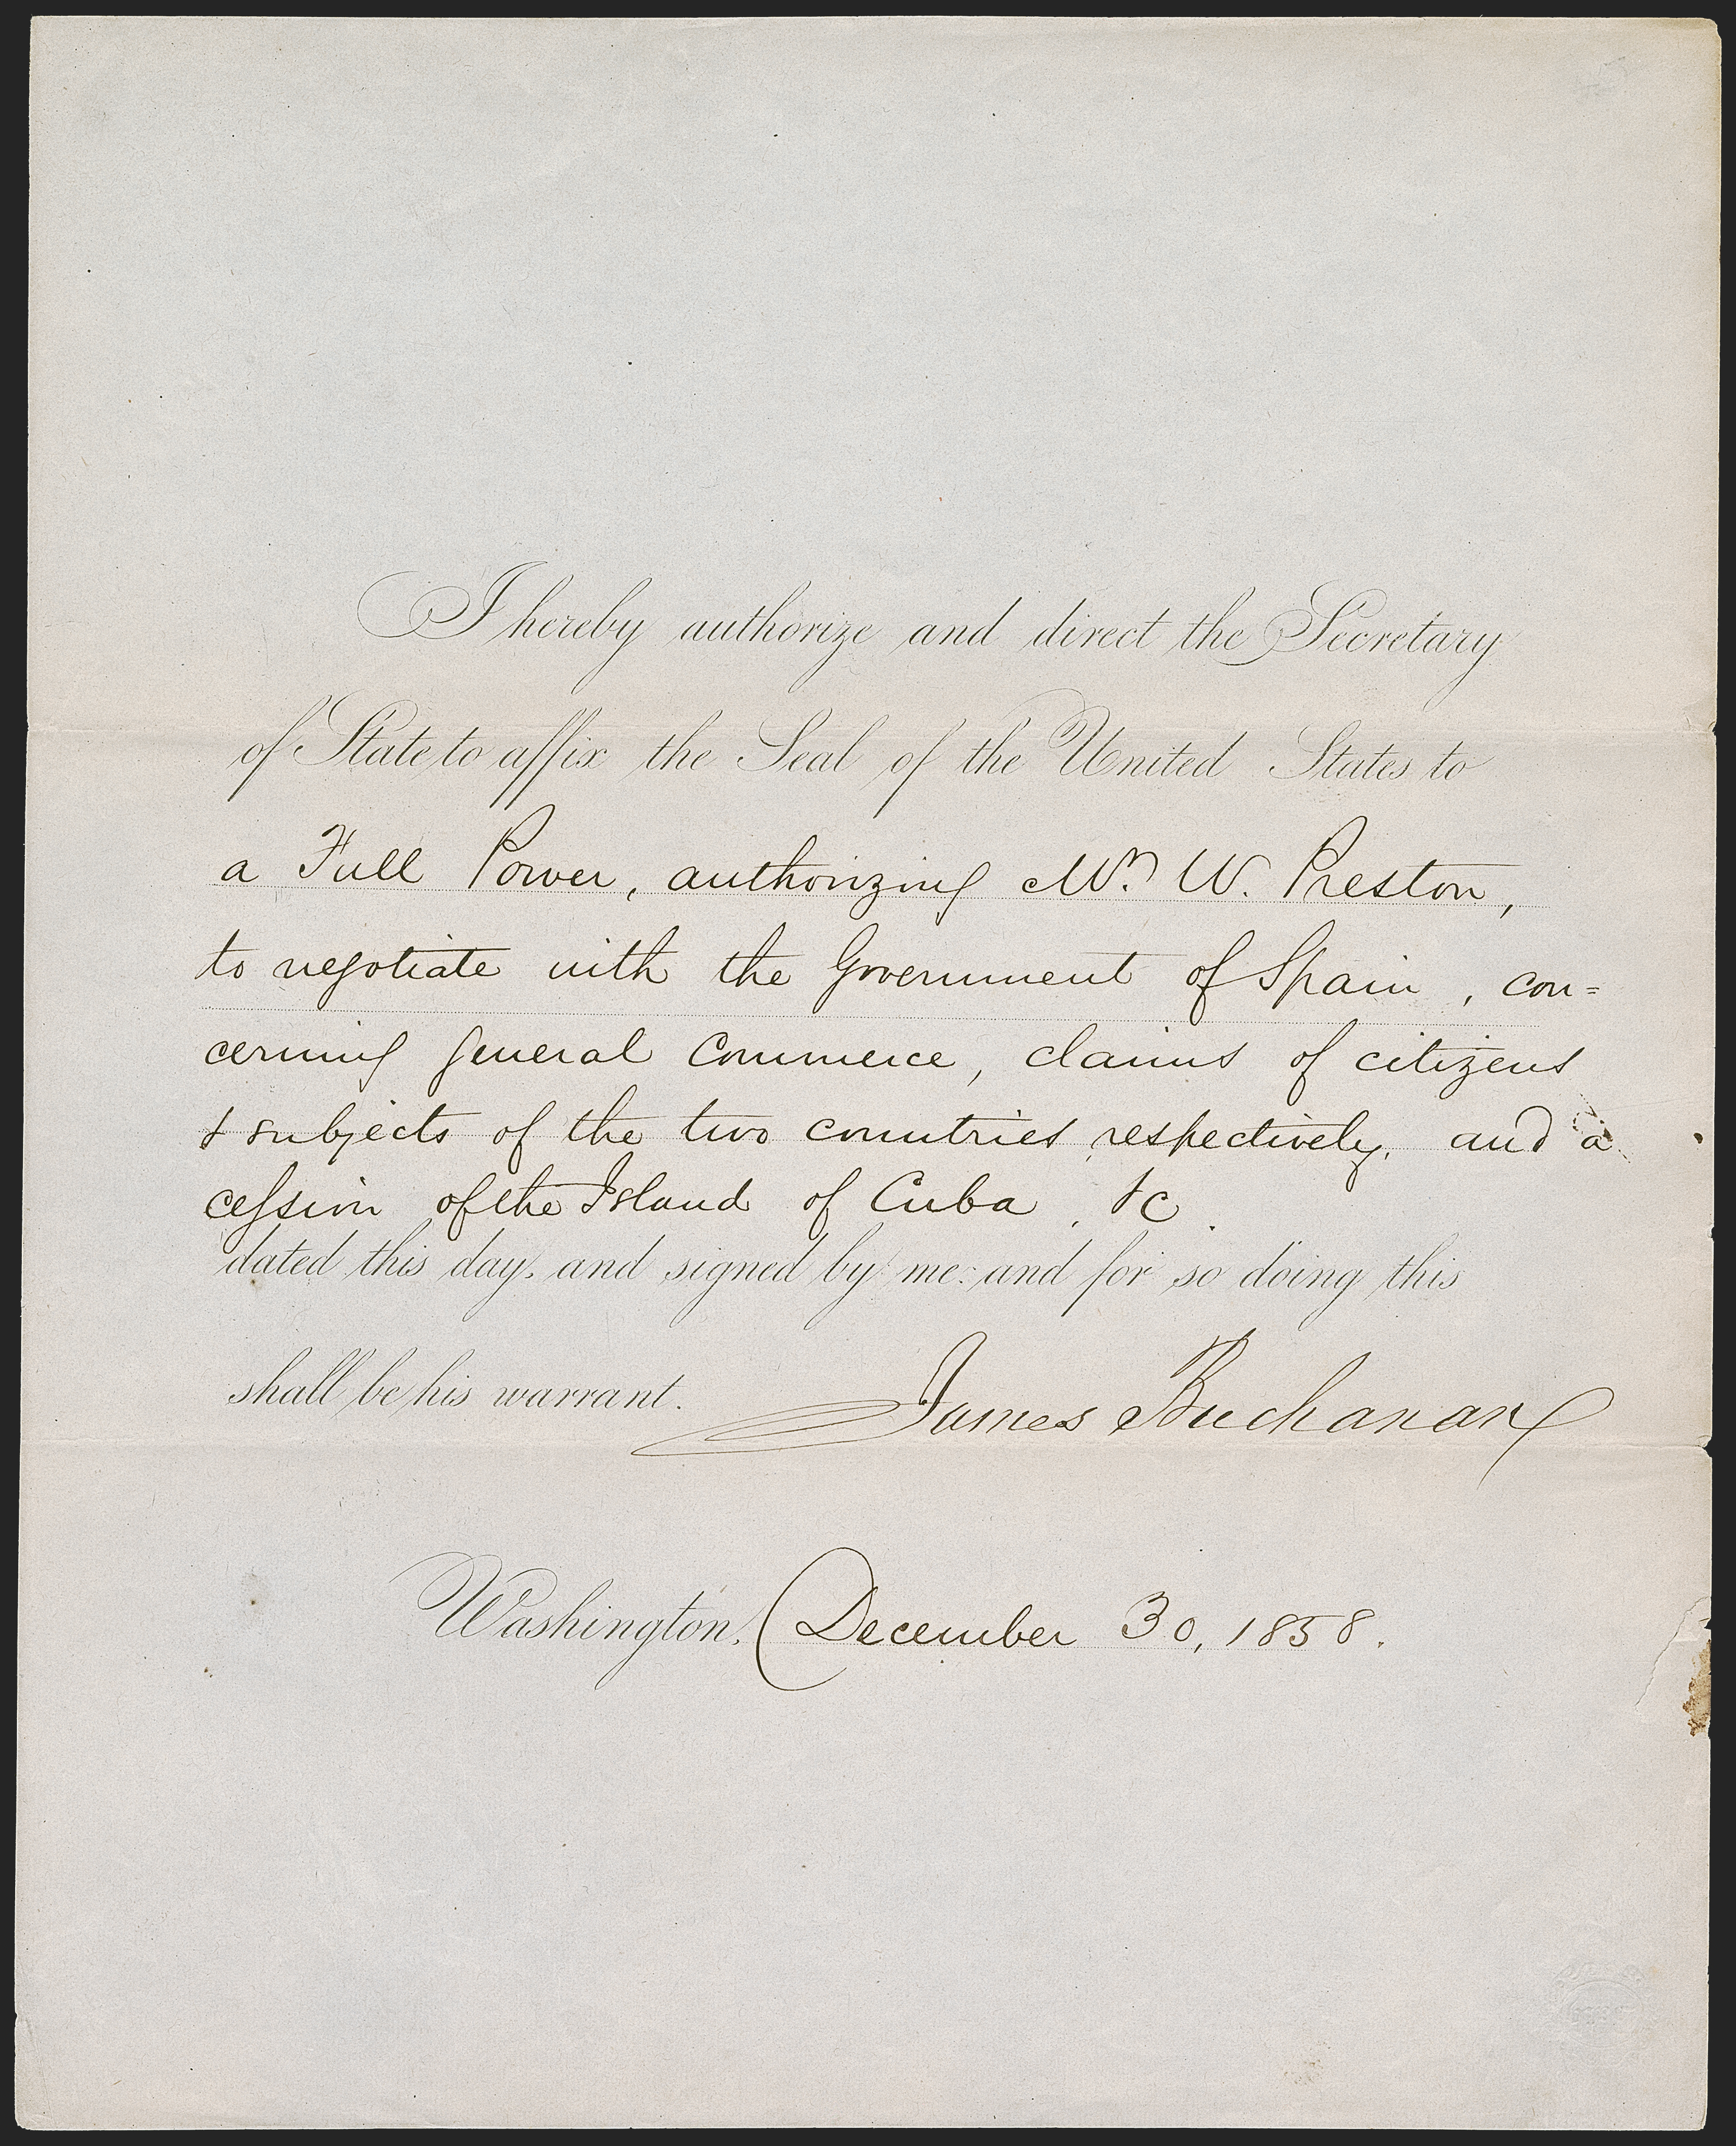 I hereby authorize and direct the Secretary
of State to affix the Seal of the United States to
a Full Power, authorizing Mr. W. Preston,
to negotiate with the Government of Spain, con=
cerning general commerce, claims of citizens
& subjects of the two countries respectively, and a
cession of the Island of Cuba, &c.
dated this day, and signed by me: and for so doing this
shall be his warrant.
James Buchanan
Washington, December 30, 1858.